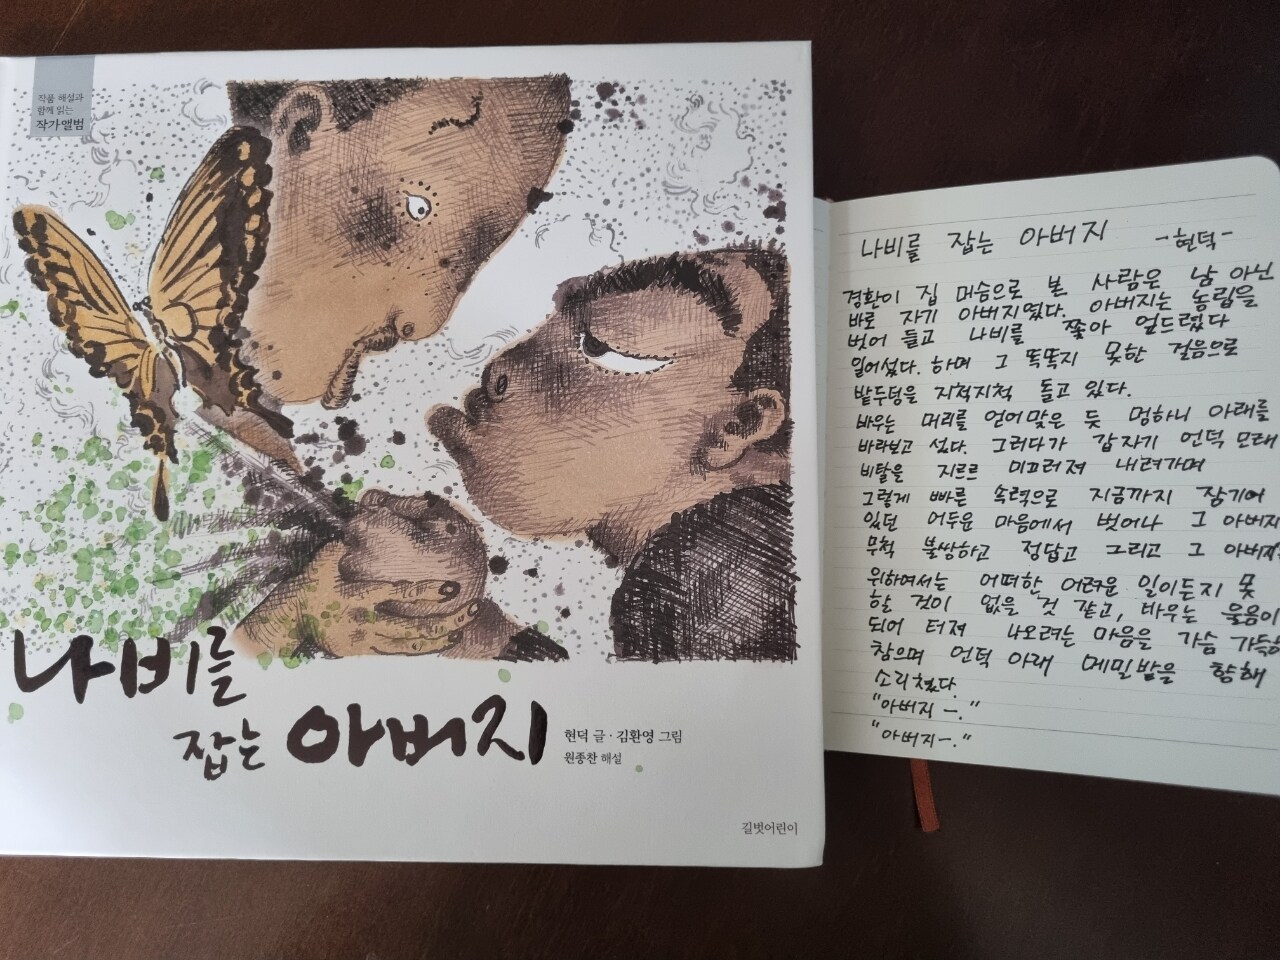 작품 해설과
함께 읽는
작가앨범
나비를
잡는 아버지
현덕 글 · 김환영 그림
원종찬 해설
길벗어린이
나비를 잡는 아버지 -현덕-
경환이 집 머슴으로 본 사람은 남 아닌
바로 자기 아버지였다. 아버지는 농립을
벗어 들고 나비를 쫓아 엎드렸다
일어섰다. 하며 그 똑똑지 못한 걸음으로
밭두덩을 지척지척 돌고 있다.
바우는 머리를 얻어맞은 듯 멍하니 아래를
바라보고 섰다. 그러다가 갑자기 언덕 모래
비탈을 지르르 미끄러져 내려가며
그렇게 빠른 속력으로 지금까지 잠기어
있던 어두운 마음에서 벗어나 그 아버지
무척 불쌍하고 정답고 그리고 그 아버지
위하여서는 어떠한 어려운 일이든지 못
할 것이 없을 것 같고, 바우는 울음이
되어 터져 나오려는 마음을 가슴 가득
참으며 언덕 아래 메밀밭을 향해
소리쳤다.
"아버지 ー."
"아버지ー."